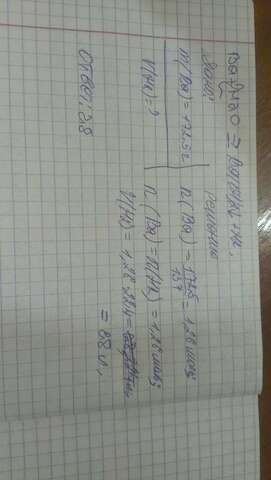 Ba + 2H2O = Ba(OH)2 + H2
Дано: решение
m(Ba) = 172.5 г n(Ba) = 172.5/137 = 1,26 моль
V(H2) = ? n(Ba) = n(H2) = 1,26 моль
V(H2) = 1,26 * 22,4 =
= 28 л.
Ответ: 28